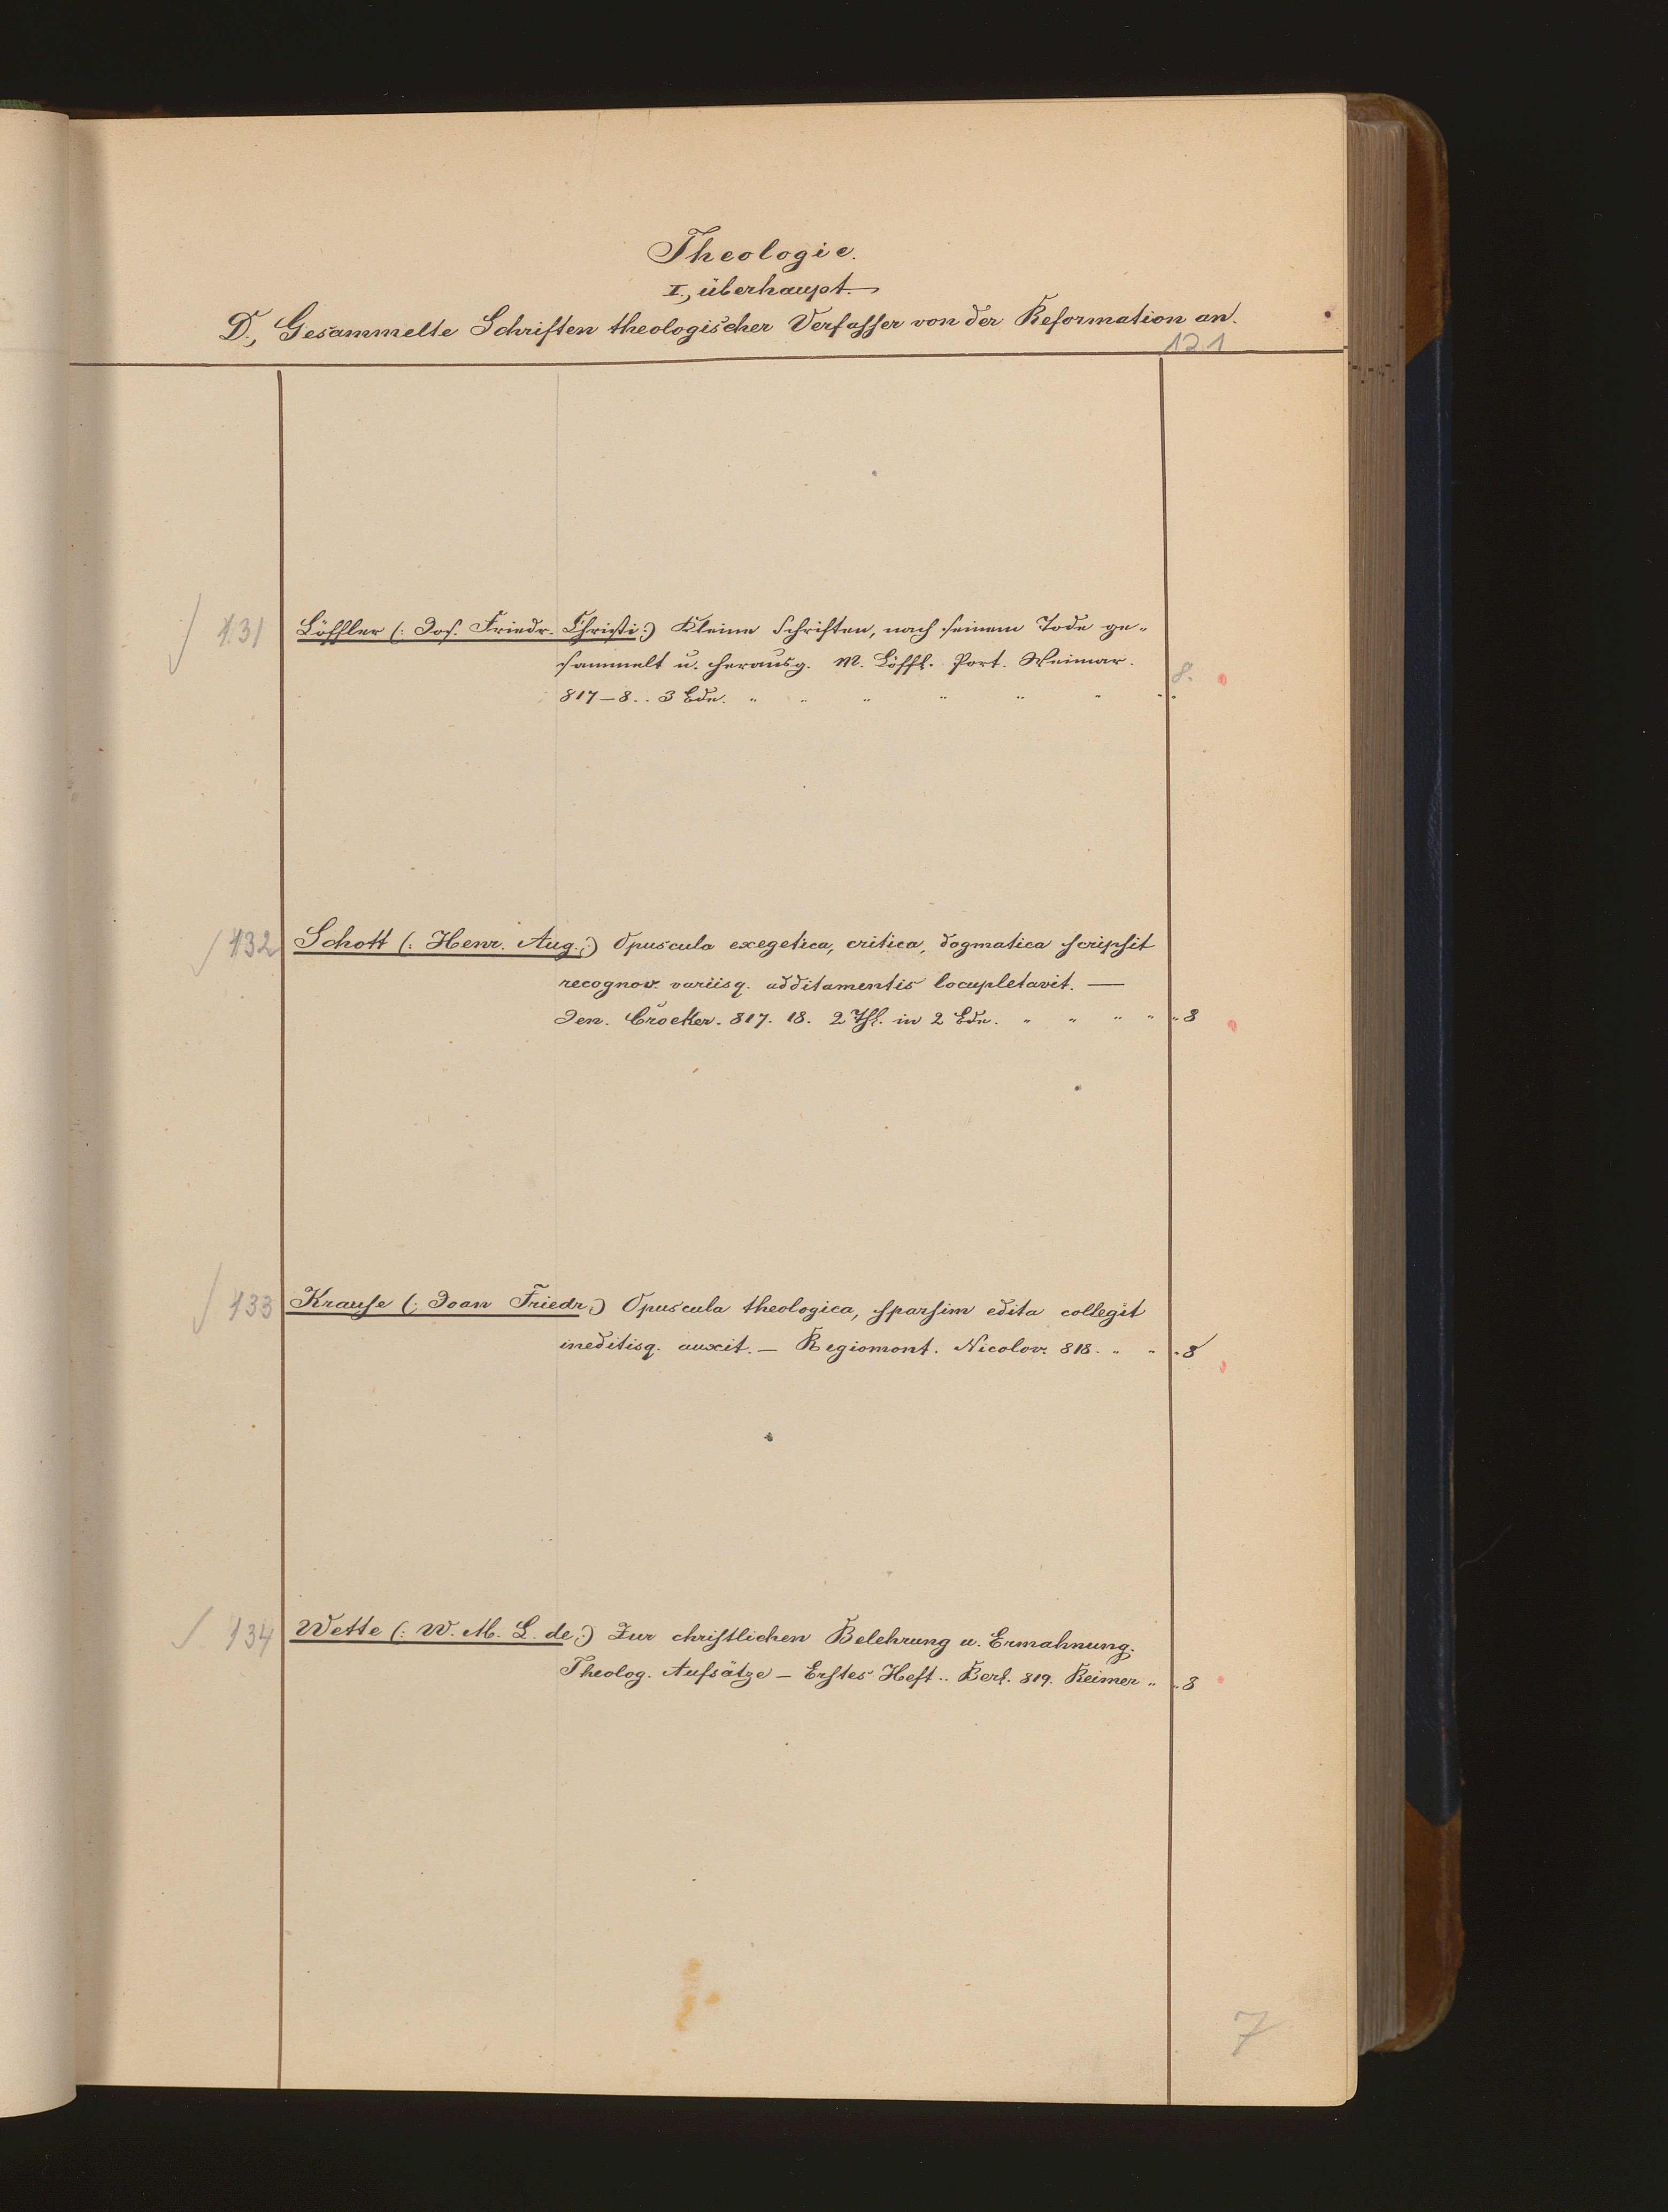 Theologie.
I., überhaupt.
D., Gesammelte Schriften theologischer Verfasser von der Reformation an.
121
131 Löffler (: Jos. Friedr. Christi :) Kleine Schriften, nach seinem Tode ge-
sammelt u. herausg. M. Löffl. Port. Weimar.
817–8. . 3 Bde. " " " " " " " 8.
132 Schott (: Henr. Aug. :) Opuscula exegetica, critica, dogmatica scripsit
recognov. variisq. additamentis locupletavit. —
Jen. Croeker. 817. 18. 2 Thl. in 2 Bdn. " " " " " 8
133 Krause (: Joan Friedr :) Opuscula theologica, sparsim edita collegit
ineditisq. auxit. — Regiomont. Nicolov. 818. " " " 8
134 Wette (: W. M. L. de :) Zur christlichen Belehrung u. Ermahnung.
Theolog. Aufsätze — Erstes Heft .. Berl. 819. Reimer " " 8
7